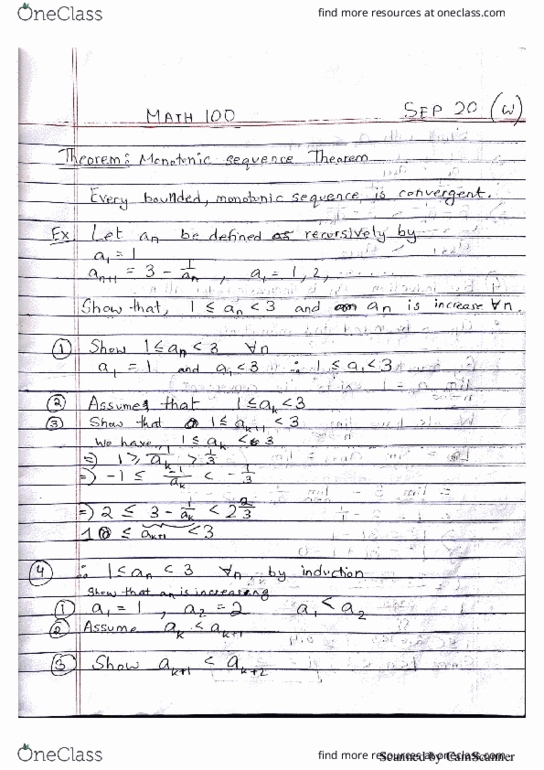 OneClass
find more resources at oneclass.com
MATH 100
SEP 20 (W)
Theorem: Monotonic sequence Theorem
Every bounded, monotonic sequence is convergent.
Ex. Let an be defined as recursively by
a₁ = 1
aₙ₊₁ = 3 - 1/aₙ , a₁ = 1, 2, ......
Show that, 1 ≤ aₙ < 3 and aₙ is increase ∀n.
① Show 1 ≤ aₙ < 3 ∀n
a₁ = 1 and a₁ < 3 ∴ 1 ≤ a₁ < 3
② Assume that 1 ≤ aₖ < 3
③ Show that 1 ≤ aₖ₊₁ < 3
We have, 1 ≤ aₖ < 3
⇒ 1 ≥ 1/aₖ > 1/3
⇒ -1 ≤ -1/aₖ < -1/3
⇒ 2 ≤ 3 - 1/aₖ < 2 2/3
1 ≤ aₖ₊₁ < 3
④ ∴ 1 ≤ aₙ < 3 ∀n, by induction
Show that an is increasing
① a₁ = 1 , a₂ = 2 a₁ < a₂
② Assume aₖ < aₖ₊₁
③ Show aₖ₊₁ < aₖ₊₂
OneClass
find more resources at oneclass.com
Scanned by CamScanner